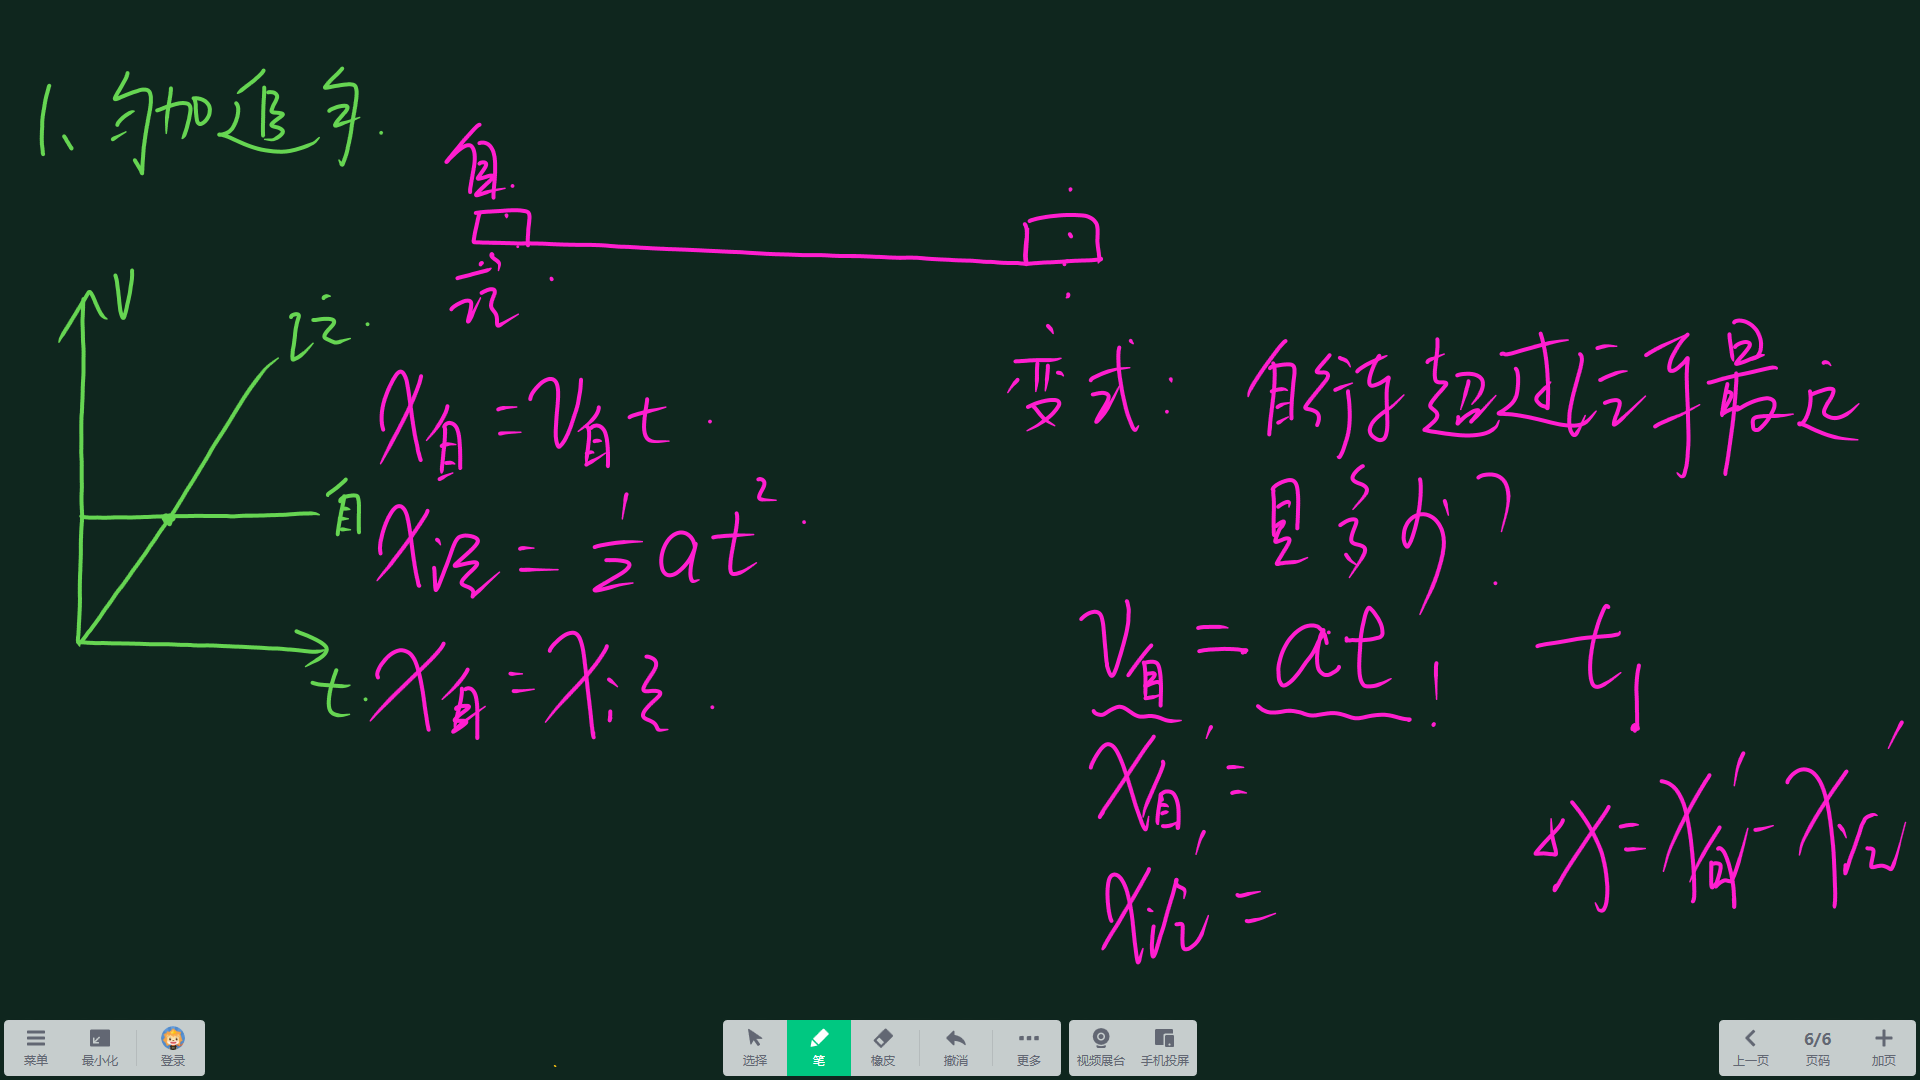 1、匀加追匀.
自
汽
V
汽
自
t
x自=v自t
x汽=½at²
x自=x汽
变式: 自行车超过汽车最远
是多少?
v自=at₁
t₁
x自'=
x汽'=
Δx=x自'-x汽'
菜单
最小化
登录
选择
笔
橡皮
撤消
更多
视频展台
手机投屏
上一页
6/6
页码
加页